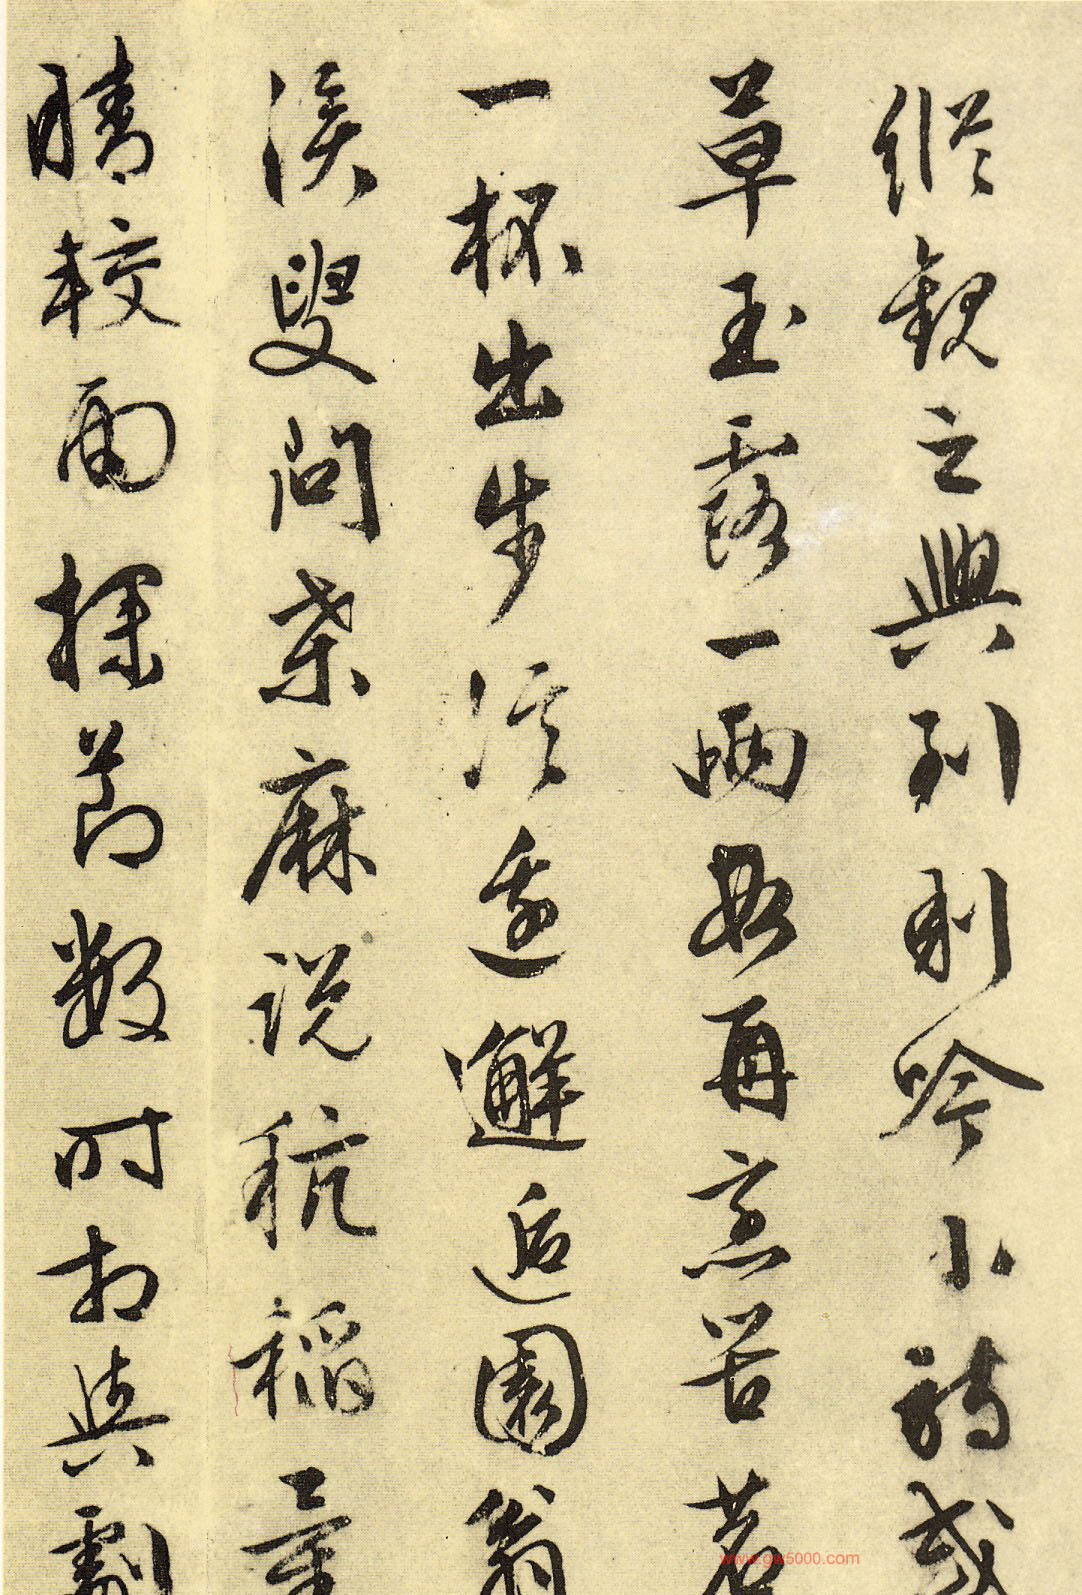 縱觀之興到則吟小詩或
草玉露一兩段再烹苦茗
一杯出步溪邊邂逅園翁
溪叟問桑麻說秔稻量
晴較雨探節數時相與劇
www.gw5000.com